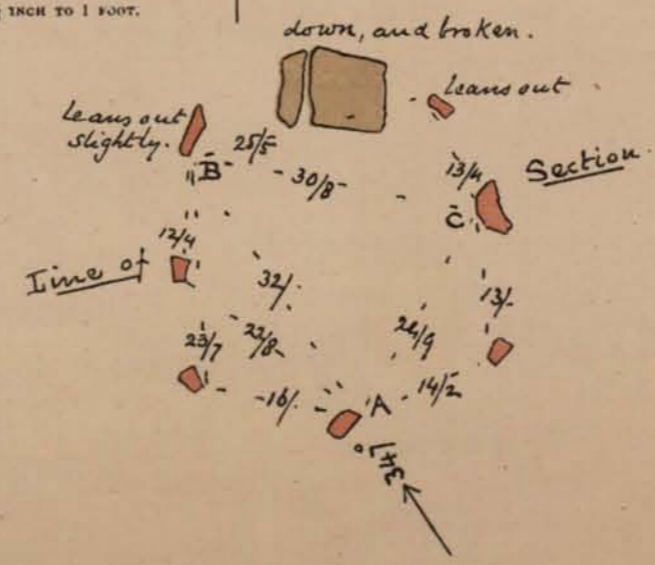 INCH TO 1 FOOT.
down, and broken.
leans out
leans out
slightly.
25/5
B
30/8
13/4
Section
C
12/4
Line of
32/.
13/-
23/7
22/8
24/9
16/.
A
14/2
347°